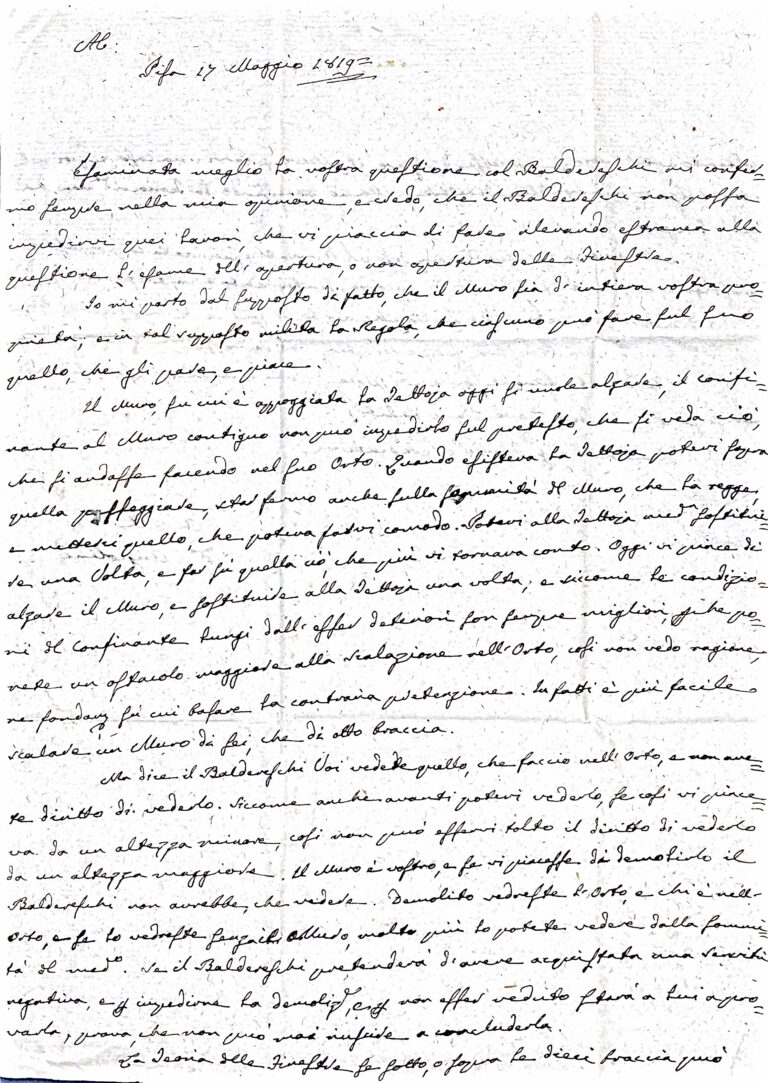 AC:
Pisa 17 Maggio 1819=
Esaminata meglio la vostra questione col Baldereschi mi confer=
mo sempre nella mia opinione, e credo, che il Baldereschi non possa
impedirvi quei lavori, che vi piaccia di fare rilevando estranea alla
questione l'esame dell'apertura, o non apertura delle Finestre.
Io mi parto dal supposto di fatto, che il Muro sia d'intiera vostra pro=
prietà, e in tal supposto milita la Regola, che ciascuno può fare sul suo
quello, che gli pare, e piace.
Il Muro, su cui è appoggiata la Tettoja oggi si vuole alzare, il confi=
nante al Muro contiguo non può impedirlo sul pretesto, che si veda ciò,
che si andasse facendo nel suo Orto. Quando esisteva la Tettoja potevi sopra
quella passeggiare, star fermo anche sulla sommità del Muro, che la regge,
e metterci quello, che poteva farvi comodo. Potevi alla Tettoja med.a sostitui=
re una Volta, e far sù quella ciò che più vi tornava conto. Oggi vi piace di
alzare il Muro, e sostituire alla Tettoja una volta; e siccome le condizio=
ni del Confinante lungi dall'esser deteriori son sempre migliori, po=
nete un ostacolo maggiore alla scalazione nell'Orto, così non vedo ragione,
ne su cui basare la contraria pretenzione. In fatti è più facile
scalare un Muro di sei, che di otto braccia.
Ma dice il Baldereschi Voi vedete quello, che faccio nell'Orto, e non ave=
te diritto di vederlo. Siccome anche avanti potevi vederlo, se così vi piace=
va da un altezza minore, così non può esservi tolto il diritto di vederlo
da un altezza maggiore. Il Muro è vostro, e se vi piacesse di demolirlo il
Baldereschi non avrebbe, che vedere. Demolito vedreste l'Orto, e chi è nell'
Orto, e se lo vedreste senza il Muro, molto più lo potete vedere dalla sommi=
tà del med.o. Se il Baldereschi pretenderà d'avere acquistata una servitù
negativa, e impedirne la non esser veduto starà a lui a pro=
varla, prova, che non può mai riuscire a concluderla.
La Teoria delle Finestre se sotto, o sopra le dieci braccia può